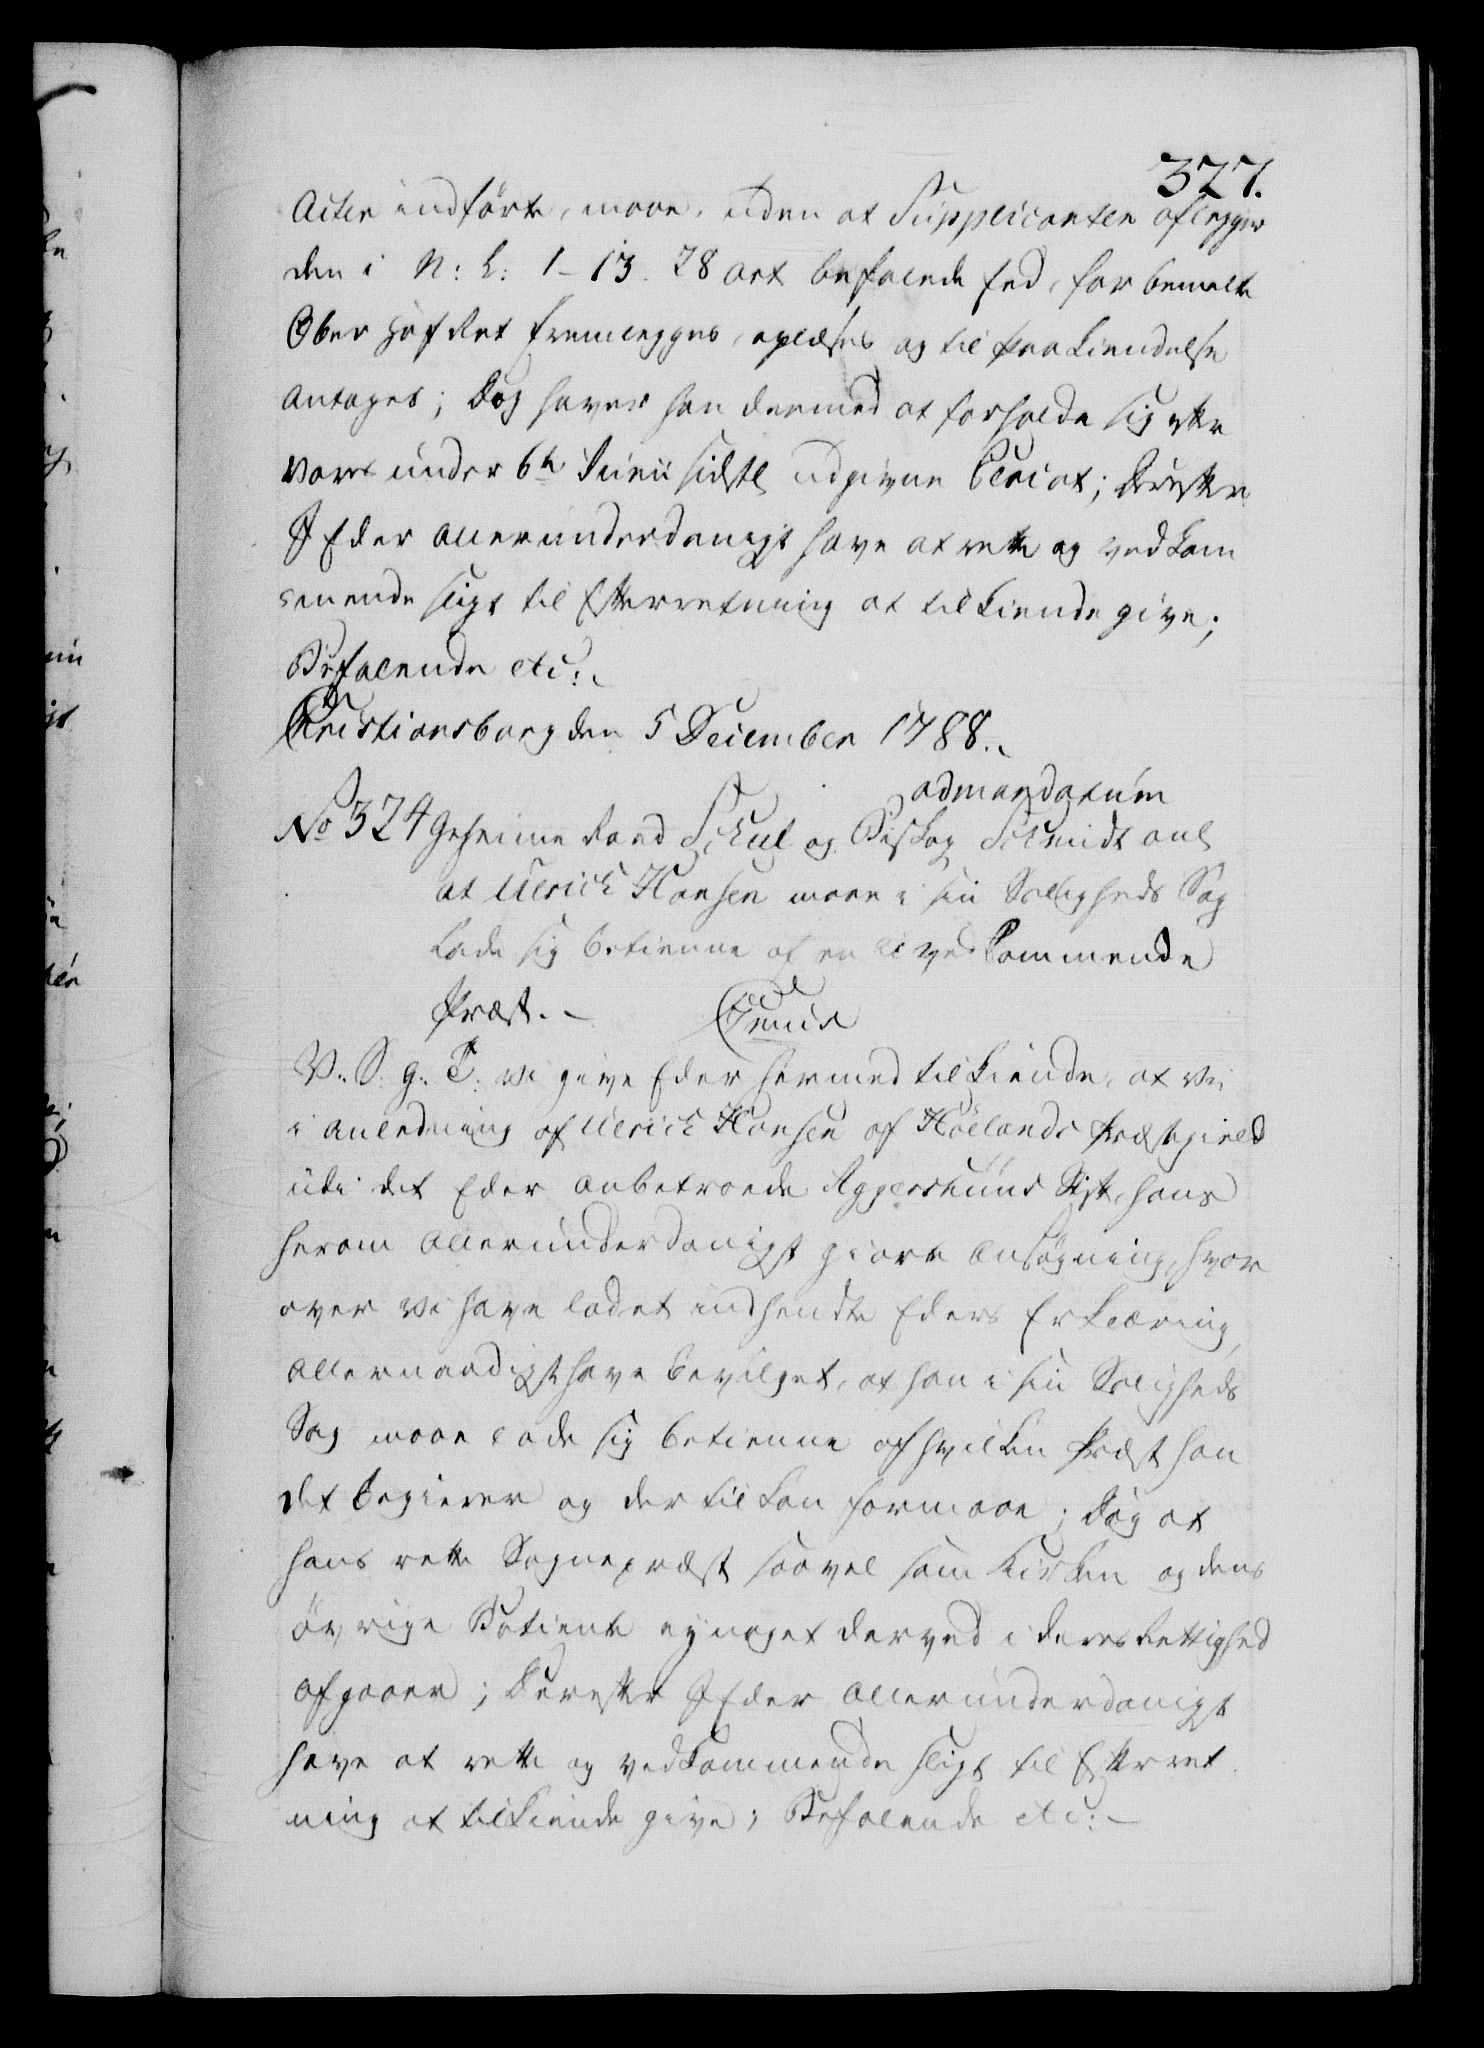 327.
Acten indförte, maae, uden at Supplicanten aflegger
den i N: L: 1-13. 28 art befalede Eed, for bemelte
Ober Hof Ret fremlegges, oplæses og til Paakiendelse
antages; Dog haver han dermed at forholde sig efter
vores under 6te Junii sidstl udgivne Placat; Derefter
I Eder allerunderdanigst have at rette og vedkom
mende sligt til Efterretning at tilkiende give;
Befalende etc:
Christiansborg den 5 December 1788.
ad mandatum
No 324 Geheime Raad Schul og Biskop Schmidt anl
at Ulrich Hansen maae i sin Saligheds Sag
lade sig betienne af en u vedkommende
Præst. -
V. S. g. T. vi give Eder hermed tilkiende, at vi
i anledning af Ulrich Hansen af Hölands Præstegield
udi det Eder anbetroede Aggershuus Stift, hans
herom allerunderdanigst giorte Ansøgning, hvor
over vi have ladet indhendte Eders Erklæring
allernaadigst have bevilget, at han i sin Saligheds
Sag maae lade sig betienne af hvilken Præst han
det begierer og der til kan formaae; dog at
hans rette Sognepræst saavel som Kirken og dens
övrige Betiente ey noget derved i deres Rettighed
afgaaer; Derefter I Eder allerunderdanigst
have at rette og vedkommende sligt til Efterret
ning at tilkiende give; Befalende etc: -